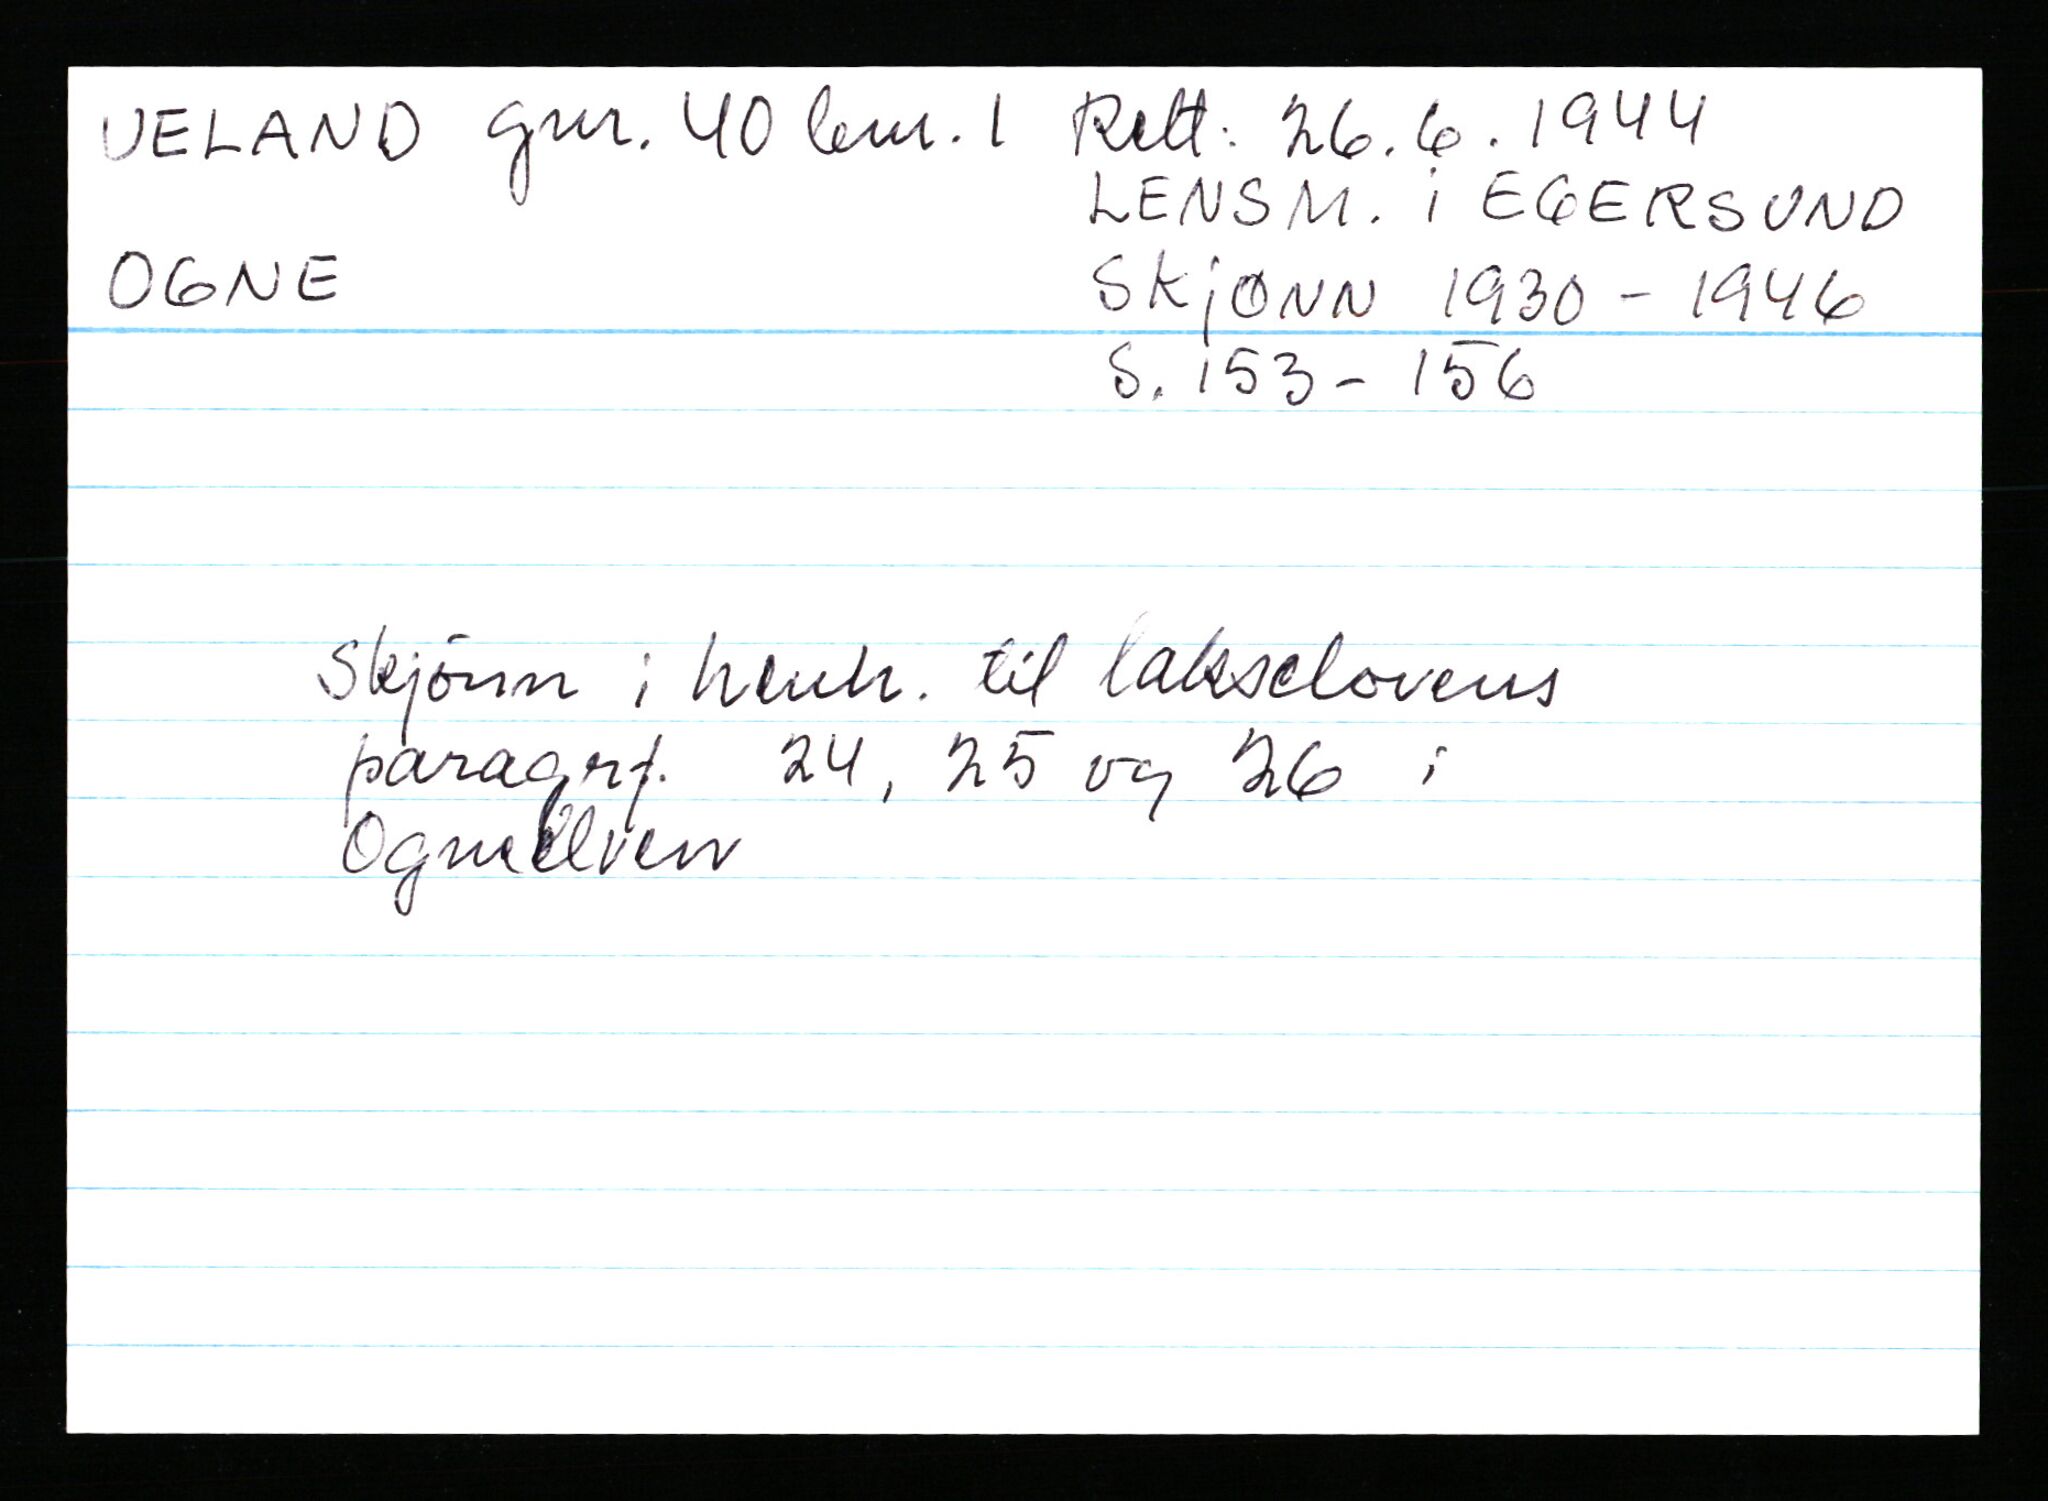 UELAND gnr. 40 bnr. 1 Rett: 26.6.1944
LENSM. i EGERSUND
OGNE
SKJØNN 1930 - 1946
S. 153 - 156
Skjønn i henh. til lakselovens
paragrf. 24, 25 og 26 i
Ogneelven